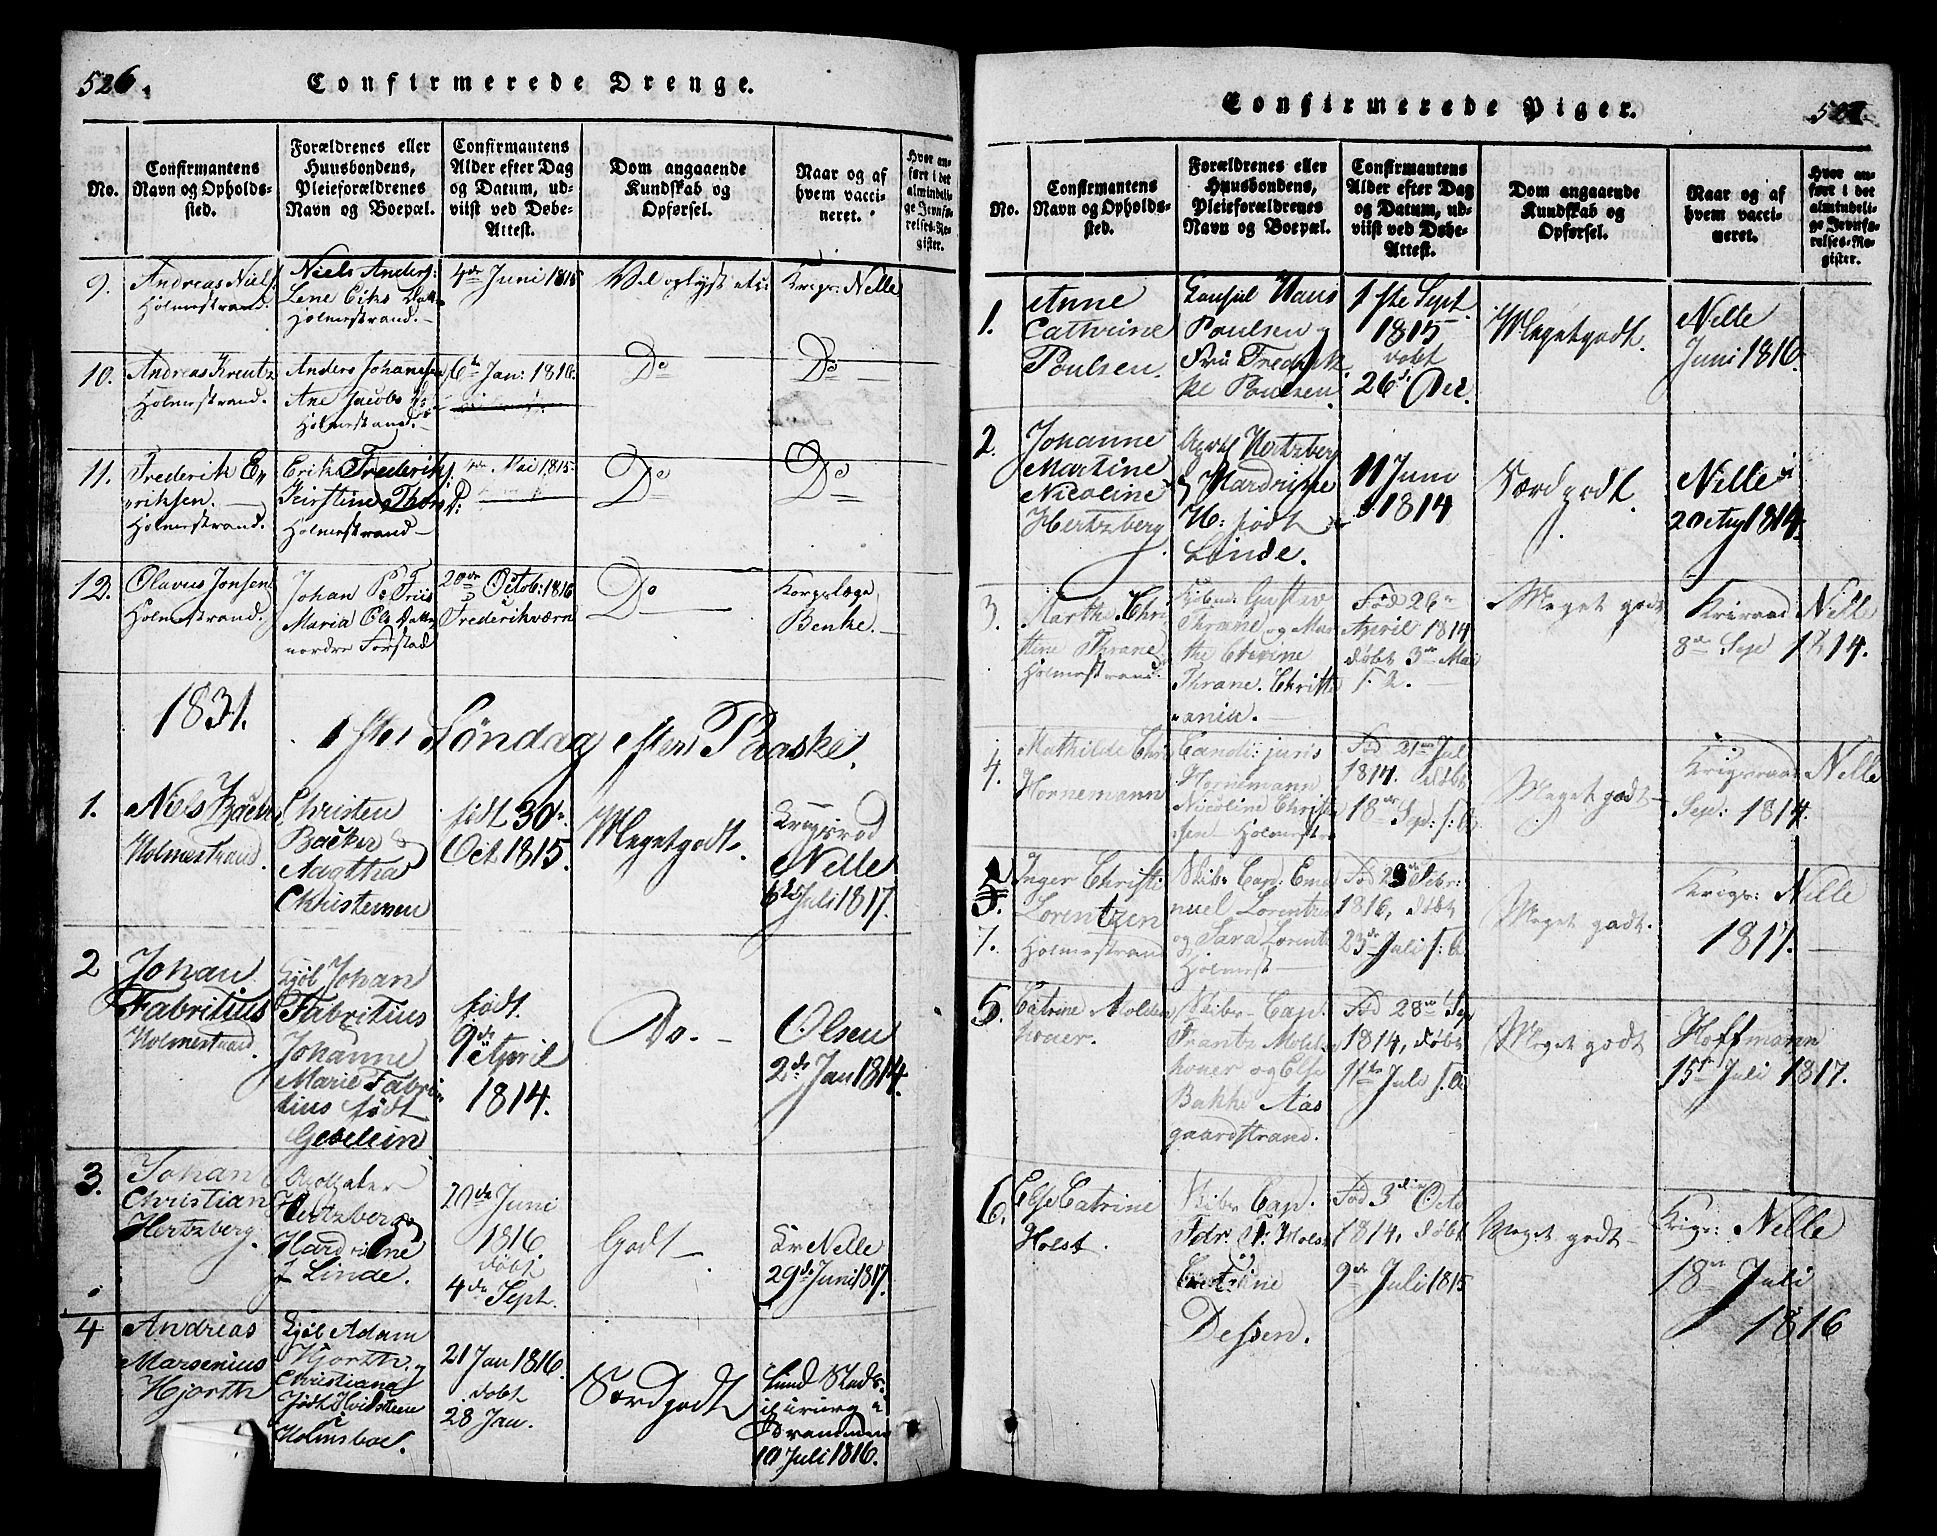 526.
Confirmerede Drenge.
No.
Confirmantens
Navn og Opholds-
sted.
Forældrenes eller
Huusbondens,
Pleieforældrenes
Navn og Boepæl.
Confirmantens
Alder efter Dag
og Datum, ud-
viist ved Døbe-
Attest.
Dom angaaende
Kundskab og
Opførsel.
Naar og af
hvem vacci-
neret.
Hvor an-
ført i det
almindeli-
ge Jevnfø-
relses-Re-
gister.
9.
Andreas Niels.
Holmestrand.
Niels Anders:
Lene Eriks
Holmestrand.
4de Juni 1815
Vel oplyst
Krigs: Nelle
10.
Andreas Kreutz
Holmestrand.
Anders Johannsen
Ane Jacobs
Holmestrand.
6de Jan: 1816.
Do
Do
11.
Frederik E-
riksen.
Holmestrand.
Erik Frederik
Kirstine Thors D:
Holmestrand
Mai 1815
Do
Do
12.
Olavus Jonsen
Holmestrand.
Johan
Maria Ols Datter
nordre
20de Octob: 1816
Frederikværn
Do
Korpslæge
Benke.
1831.
1ste Søndag efter Paaske.
1.
Niels Backer
Holmestrand.
Christen
Backer &
Aagtha
Christensen
født 30te
Oct 1815.
Megetgodt.
Krigsrod
Nelle
6te Juli 1817.
2
Johan
Fabritius
Holmestrand.
Kjøb Johan
Fabritius
Johanne
Marie Fabri-
tius født
Gebelein.
født
9de April
1814.
Do.
Olsen
2de Jan 1814.
3.
Johan
Christian
Hertzberg.
Apotheker
Hertzberg
Hardvine
f Linde.
20de Juni
1816.
døbt
4de Sept.
Godt
Kr Nelle
29de Juni 1817.
4
Andreas
Marsenius
Hjorth
Kjøb Adam
Hjorth.
Christiana
født Hvidsteen
i
Holmsboe.
21 Jan 1816.
døbt
28 Jan.
Særdgodt
Lund Stads-
i
Drammen
10 Juli 1816.
Confirmerede Piger.
No.
Confirmantens
Navn og Opholds-
sted.
Forældrenes eller
Huusbondens,
Pleieforældrenes
Navn og Boepæl.
Confirmantens
Alder efter Dag
og Datum, ud-
viist ved Døbe-
Attest.
Dom angaaende
Kundskab og
Opførsel.
Naar og af
hvem vacci-
neret.
Hvor an-
ført i det
almindeli-
ge Jevnfø-
relses-Re-
gister.
1.
Anne
Cathrine
Poulsen.
Consul Hans
Poulsen og
Fru Fredrik-
ke Poulsen.
1ste Sept.
1815
døbt
26de Dec.
Megetgodt.
Nelle
Juni 1816.
2.
Johanne
Martine
Nicoline
Hertzberg
Hertzberg
H: født
Linde.
11 Juni
1814
Særdgodt.
Nelle
20 Aug 1814.
3.
Marthe Chri
stine Thrane
Holmestrand.
Gustav
Thrane og Mar
the
Thrane. Christi
ania.
Fød 26de
April 1814
døbt 3de Mai
Meget godt
Kriraad Nelle
8de Sep 1814.
4.
Mathilde Chri
Hornemann
Candi: juris
Hornemann
Nicoline Christi
sen Holmestr
Fød 21de Jul
1814. døbt
18de Sep:
Meget godt
Krigsraad Nelle
Sept: 1814.
5.
7.
Inger Christi
Lorentzen
Holmestrand
Skibs Cap: Ema
nuel Lorentzen
og Sara Lorentz
Holmest
Febr:
1816, døbt
23de Juli
Meget godt.
Krigs: Nelle
1817.
5.
Catrine Molden
houer.
Skibs Cap.
Frantz Molden
houer og Else
Bakke Aas
gaardstrand.
Fød 28de Sep
1814, døbt
11te Juli
Meget godt
Hoffmann
15de Juli 1817.
6.
Else Catrine
Holst.
Skibs Cap.
Holst
Dessen.
Fød 3die Octo
1814, døbt
9de Juli 1815
Meget godt
Krigs: Nelle
18de Juli
1816